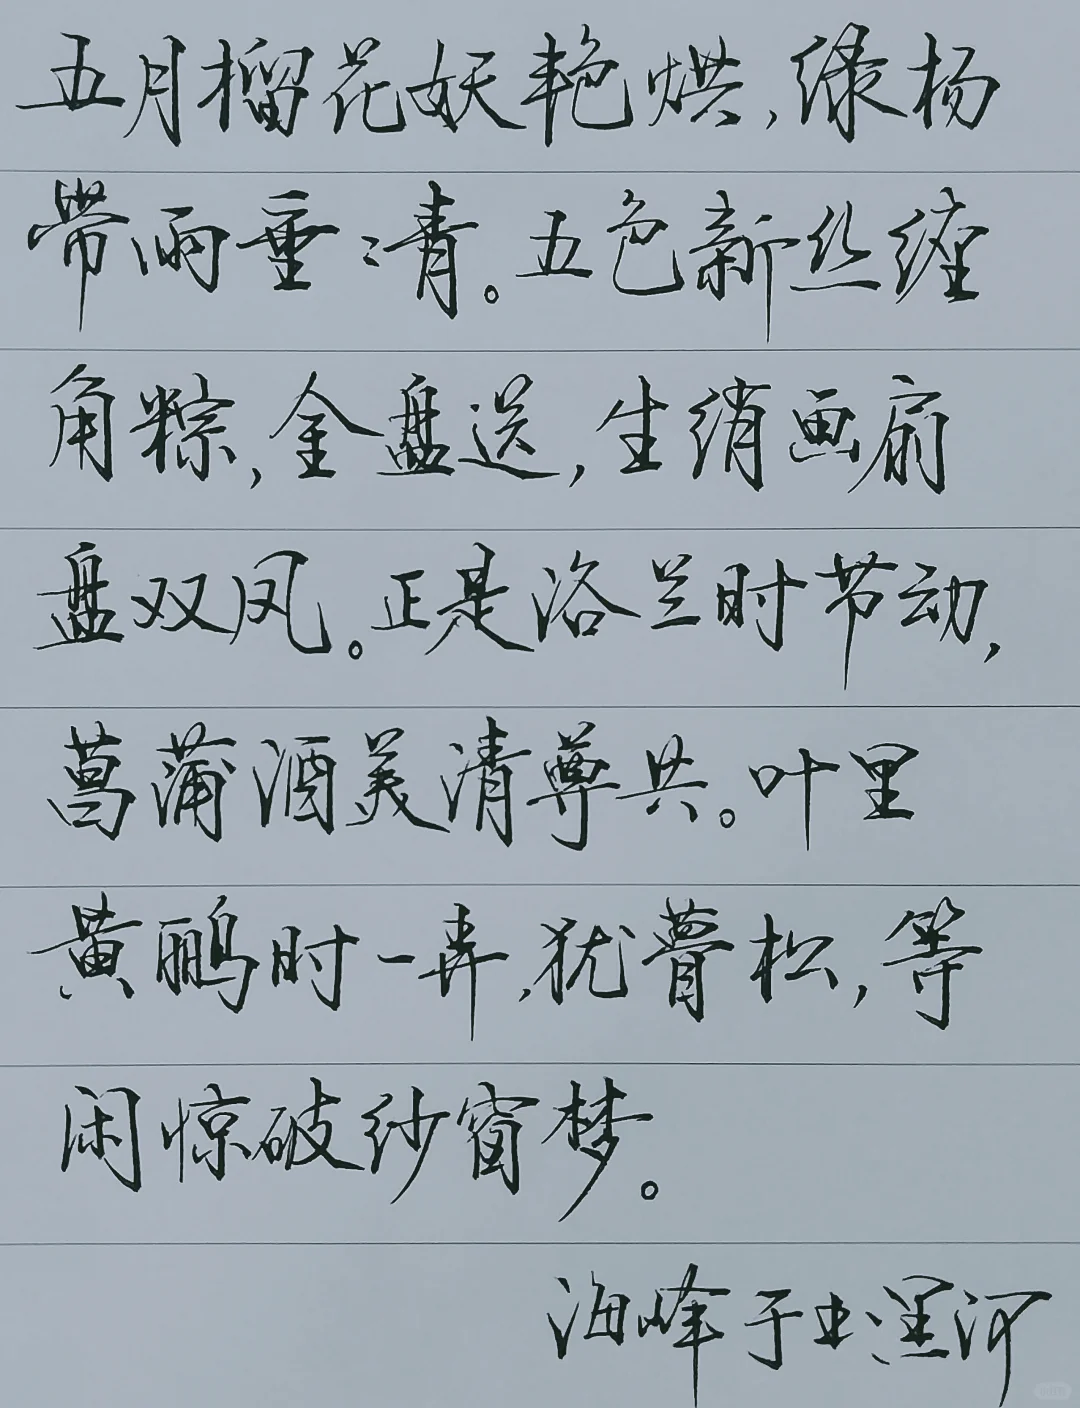 五月榴花妖艳烘,绿杨
带雨垂:清。五色新丝缠
角粽,金盘送,生绡画扇
盘双凤。正是浴兰时节动,
菖蒲酒美清尊共。叶里
黄鹂时一弄,犹瞢松,等
闲惊破纱窗梦。
海峰于